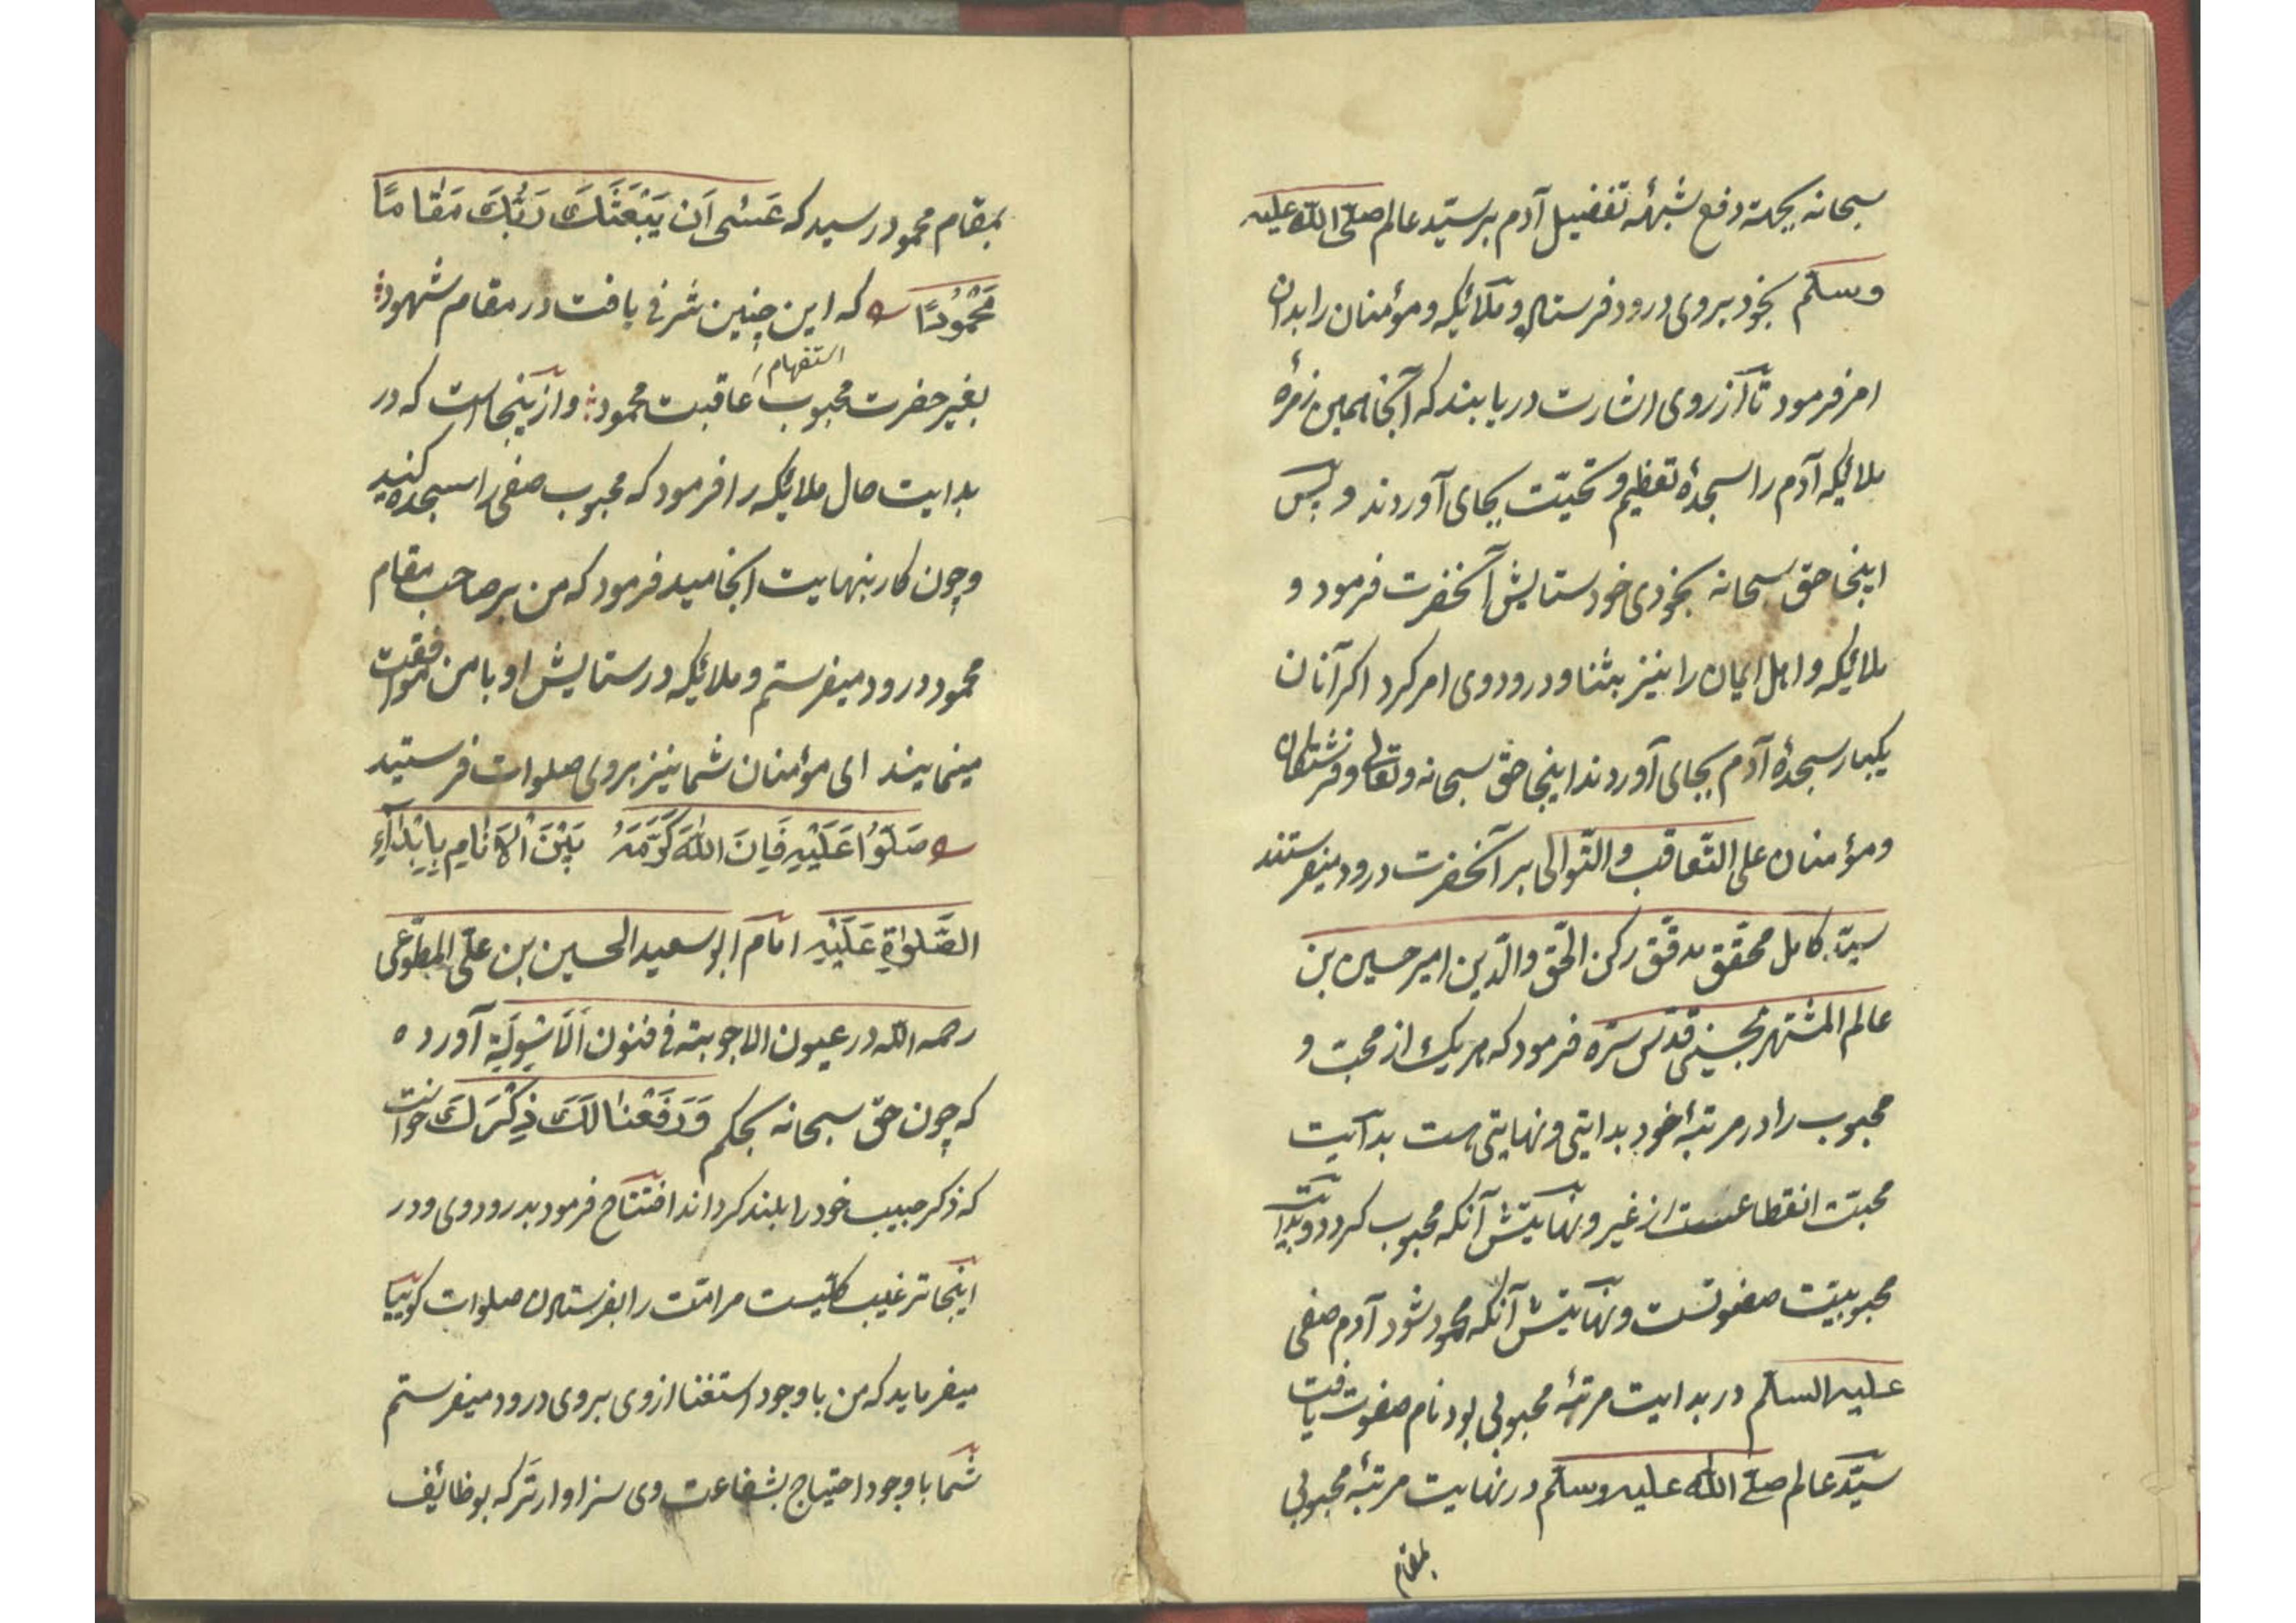 سبحانه بجهة دفع شبهۀ تفضیل آدم بر سیّد عالم صلّی اللّه علیه
وسلّم بخود بروی درود فرستاد و ملائکه و مؤمنان را بدان
امر فرمود تا از روی اشارت دریابند که آنجا همین زمرۀ
ملائکه آدم را سجدۀ تعظیم و تحیّت بجای آوردند و پس
اینجا حق سبحانه بخودی خود ستایش آنحضرت فرمود و
ملائکه و اهل ایمان را نیز بثنا و درود وی امر کرد اکر آنان
یکبار سجدۀ آدم بجای آوردند اینجا حق سبحانه و تعالی و فرشتکان
و مؤمنان علی التّعاقب والتّوالی بر آنحضرت درود میفرستند
سیّد کامل محقّق مدقّق رکن الحقّ والدّین امیر حسین بن
عالم المشتهر بحسینی قدّس سرّه فرمود که هر یک از محبّ و
محبوب را در مرتبۀ خود بدایتی و نهایتی هست بدایت
محبّت انقطاعست از غیر و نهایتش آنکه محبوب کردد و بدایت
محبوبیّت صفوتست و نهایتش آنکه محمود شود آدم صفی
علیه السلم در بدایت مرتبۀ محبوبی بود نام صفوت یافت
سیّد عالم صلّی اللّه علیه وسلّم در نهایت مرتبۀ محبوبی
بمقام
بمقام محمود رسید که عَسٰی اَن یَبْعَثَکَ رَبُّکَ مَقَامًا
مَحْمُودًا که این چنین شرفی یافت در مقام شهود
استفهام
بغیر حضرت محبوب عاقبت محمود و از ینجاست که در
بدایت حال ملائکه را فرمود که محبوب صفی را سجده کنید
وچون کار بنهایت انجامید فرمود که من بر صاحب مقام
محمود درود میفرستم و ملائکه در ستایش او با من موافقت
مینمایند ای مؤمنان شما نیز بروی صلوات فرستید
صَلَّوُا عَلَیْهِ فَاِنَ اللّهَ کَرَّمَهُ بَیْنَ الْاَنَامِ بِاِبْدَآءِ
الصَّلٰوةِ عَلَیْهِ امام ابو سعید الحسین بن علی المطّوّعی
رحمه اللّه در عیون الاجوبة فی فنون الاسْوِلَة آورده
که چون حقّ سبحانه بحکم وَرَفَعْنَا لَکَ ذِکْرَکَ خواست
که ذکر حبیب خود را بلند کرداند افتتاح فرمود بدرود وی و در
اینجا ترغیب کلّیست مر امّت را بفرستادن صلوات کوییا
میفرماید که من با وجود استغنا از وی بروی درود میفرستم
شما با وجود احتیاج بشفاعت وی سزاوارتر که بوظائف